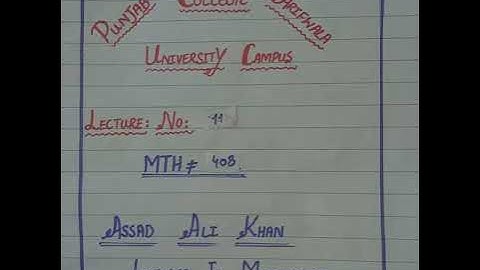 PUNJAB COLLEGE ARIFWALA
UNIVERSITY CAMPUS
LECTURE: NO: 11
MTH≠ 408.
ASSAD ALI KHAN